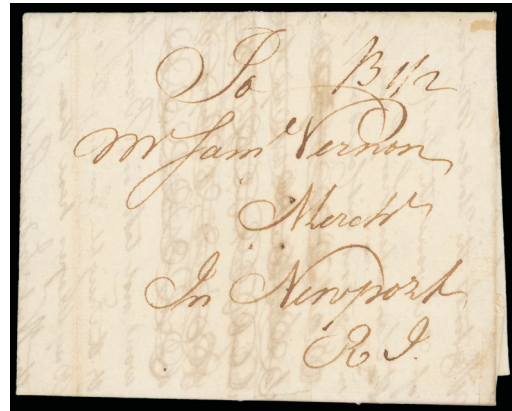 To B 1/2
Mr Sam.l Vernon
Mercht
In Newport
R I.